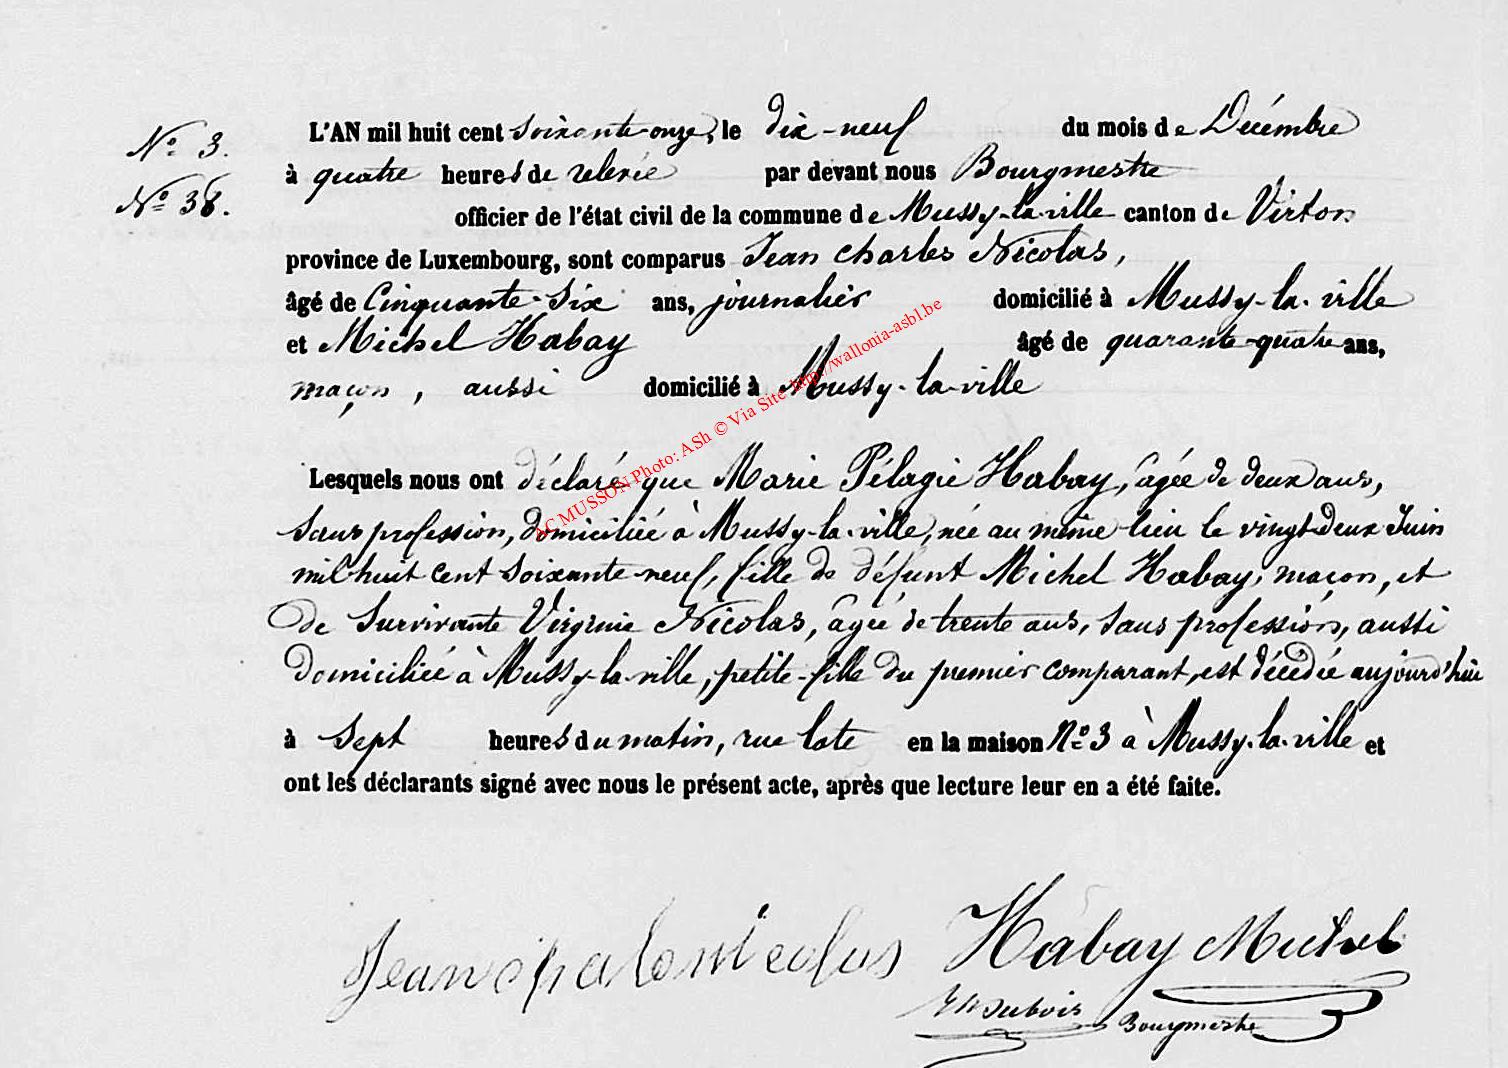 N° 3.
N° 38.
L'AN mil huit cent soixante-onze, le dix-neuf du mois de Décembre
à quatre heures de relevée par devant nous Bourgmestre
officier de l'état civil de la commune de Mussy-la-ville canton de Virton
province de Luxembourg, sont comparus Jean Charles Nicolas,
âgé de Cinquante-Six ans, journalier domicilié à Mussy-la-ville
et Michel Habay âgé de quarante-quatre ans,
maçon, aussi domicilié à Mussy-la-ville
Lesquels nous ont déclaré que Marie Pélagie Habay, âgée de deux ans,
sans profession, domiciliée à Mussy-la-ville, née au même lieu le vingt-deux Juin
mil huit cent soixante-neuf, fille de défunt Michel Habay, maçon, et
de Survivante Virginie Nicolas, âgée de trente ans, sans profession, aussi
domiciliée à Mussy-la-ville, petite-fille du premier comparant, est décédée aujourd'hui
à Sept heures du matin, rue late en la maison N° 3 à Mussy-la-ville et
ont les déclarants signé avec nous le présent acte, après que lecture leur en a été faite.
AC MUSSON Photo: ASh © Via Site http://wallonia-asbl.be
Habay Michel
Dubois
Bourgmestre